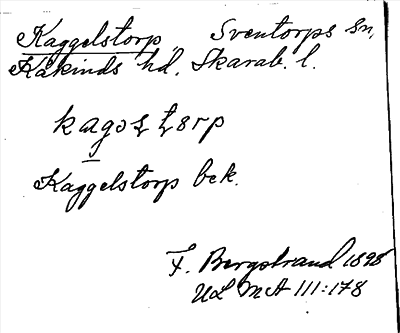 Kaggelstorp, Sventorps sn,
Kåkinds hd, Skarab. l.
Kaggelstorp bek.
F. Bergstrand 1898
ULMA 111:178